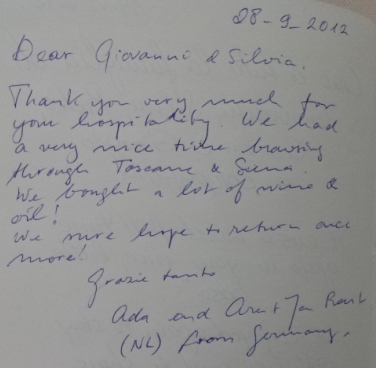 28-9-2012
Dear Giovanni & Silvia,
Thank you very much for
your hospitality. We had
a very nice time browsing
through Toscane & Siena.
We bought a lot of wine &
oil!
We sure hope to return once
more!
Grazie tanto
Ada and Arent Jan
(NL) from Germany.